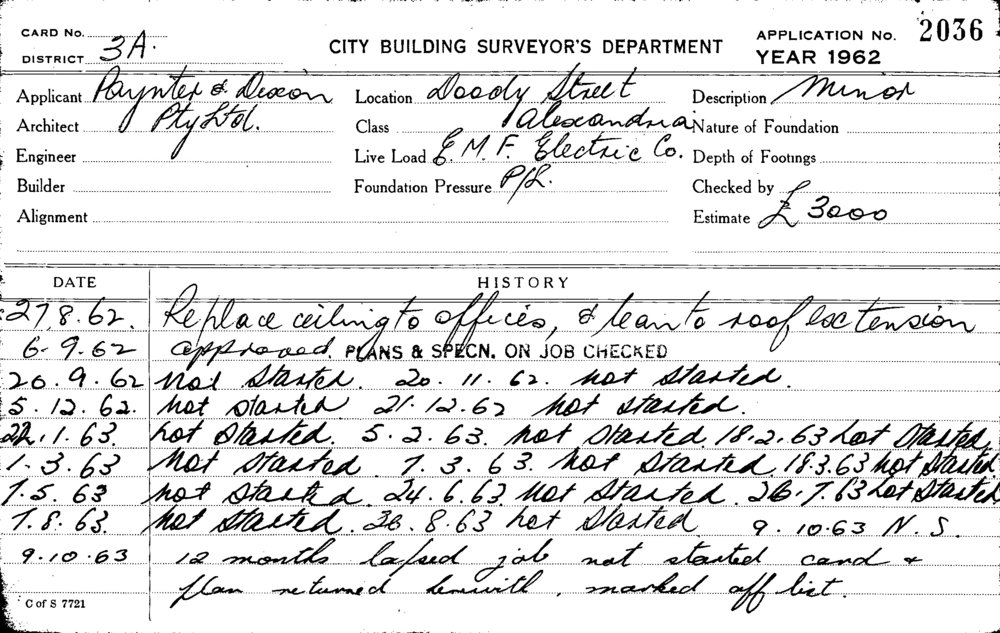 CARD No.
DISTRICT 3A.
CITY BUILDING SURVEYOR'S DEPARTMENT
APPLICATION No. 2036
YEAR 1962
Applicant Paynter & Dixon Location Doody Street Description Minor
Architect Pty Ltd. Class Alexandria Nature of Foundation
Engineer Live Load E.M.F. Electric Co. Depth of Footings
Builder Foundation Pressure P/L. Checked by
Alignment Estimate £3000
DATE HISTORY
27.8.62. Replace ceiling to offices, & lean to roof extension
6-9.62 approved. PLANS & SPECN. ON JOB CHECKED
20.9.62 Not started. 20.11.62. not started.
5.12.62. Not started 21.12.62 Not started.
22.1.63. Not started. 5.2.63. Not started. 18.2.63 Not started.
1.3.63 Not started. 7.3.63. Not started 18.3.63 Not started
7.5.63 Not started. 24.6.63 Not started. 26.7.63 Not started.
7.8.63. Not started. 30.8.63 Not started 9.10.63 N.S.
9.10.63 12 months lapsed job not started card &
plan returned herewith. marked off list.
C of S 7721